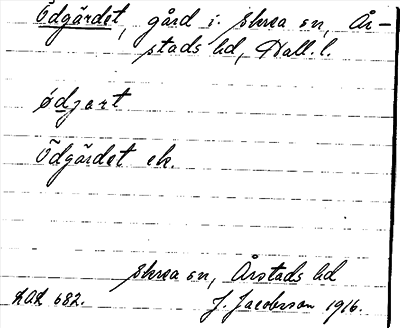 Ödgärdet, gård i Skrea sn, År-
stads hd, Hall.l.
ødjart
Ödgärdet ek.
Skrea sn, Årstads hd
682. J. Jacobsson 1916.